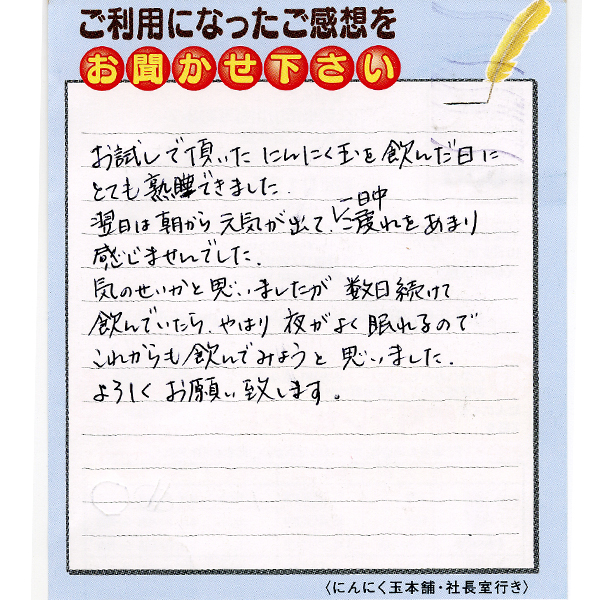 ご利用になったご感想を
お聞かせ下さい
お試しで頂いた にんにく玉を 飲んだ日に
とても熟睡できました.
一日中
翌日は朝から 元気が出て、疲れを あまり
感じませんでした.
気のせいかと思いましたが 数日続けて
飲んでいたら、やはり 夜がよく眠れるので
これからも 飲んでみようと 思いました.
よろしく お願い致します。
〈にんにく玉本舗・社長室行き〉